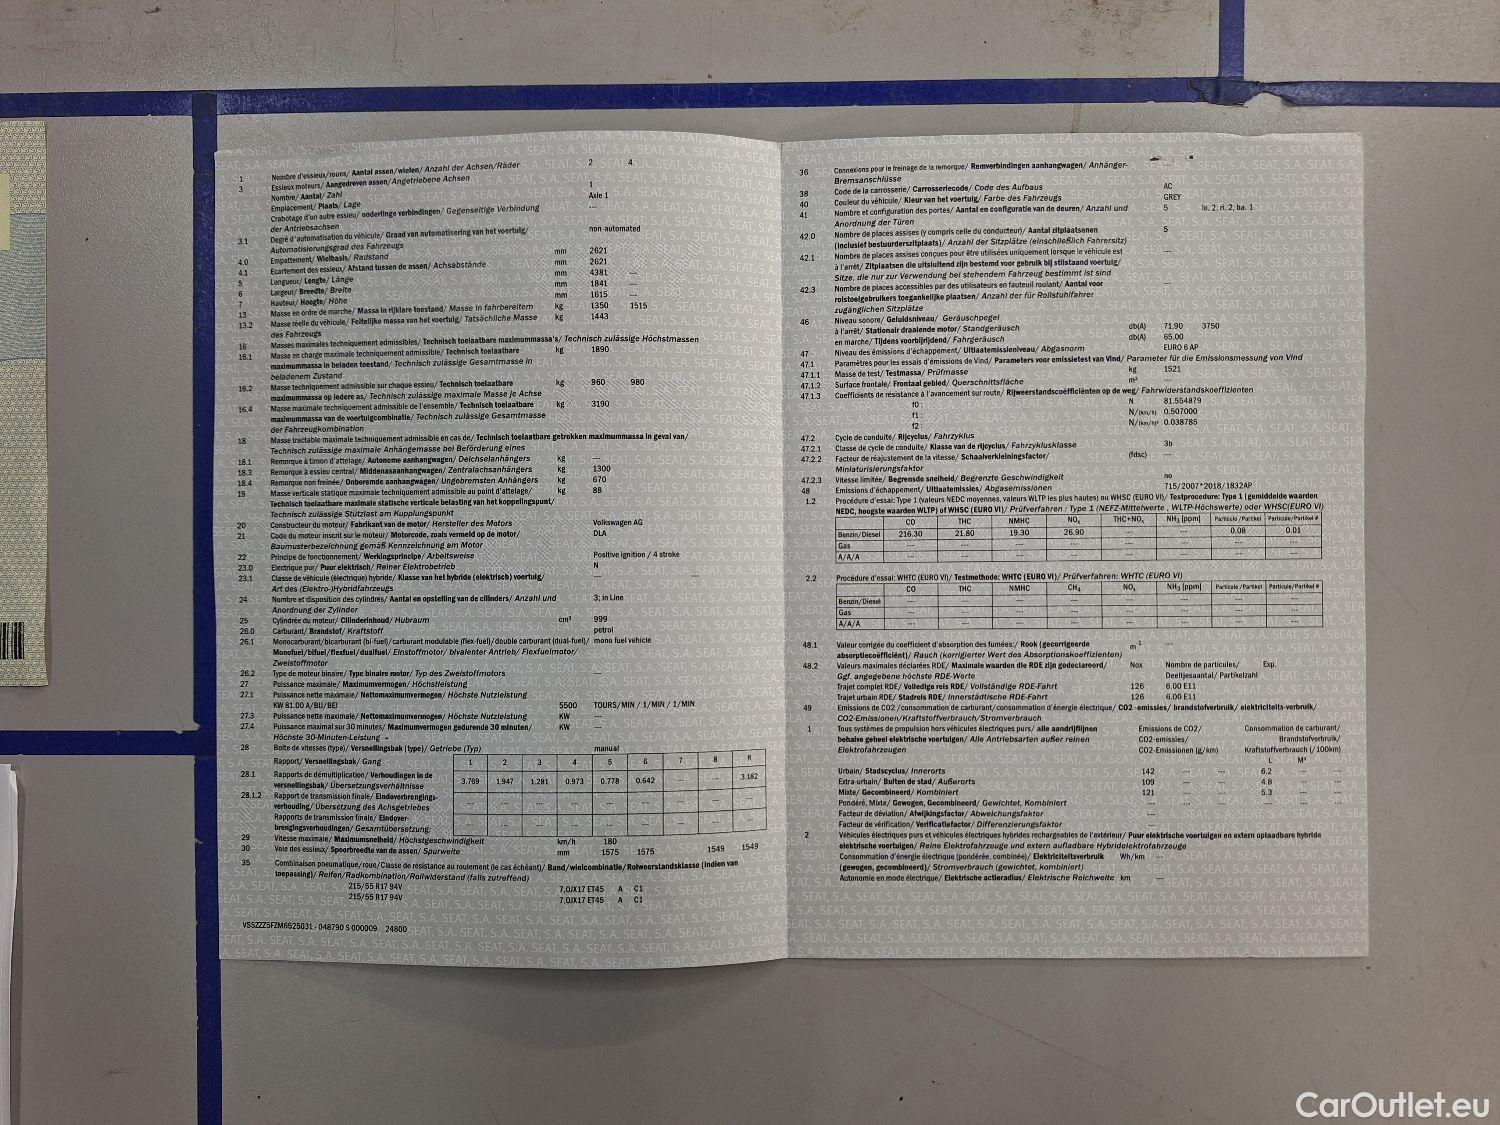 1 Nombre d'essieux/roues/ Aantal assen/wielen/ Anzahl der Achsen/Räder 2 4
3 Essieux moteurs/ Aangedreven assen/Angetriebene Achsen
Nombre/ Aantal/ Zahl 1
Emplacement/ Plaats/ Lage Axle 1
Crabotage d'un autre essieu/ onderlinge verbindingen/ Gegenseitige Verbindung ---
der Antriebsachsen
3.1 Degré d'automatisation du véhicule/ Graad van automatisering van het voertuig/ non-automated
Automatisierungsgrad des Fahrzeugs
4.0 Empattement/ Wielbasis/ Radstand mm 2621
4.1 Ecartement des essieux/ Afstand tussen de assen/ Achsabstände mm 2621 ---
5 Longueur/ Lengte/ Länge mm 4381 ---
6 Largeur/ Breedte/ Breite mm 1841 ---
7 Hauteur/ Hoogte/ Höhe mm 1615 ---
13 Masse en ordre de marche/ Massa in rijklare toestand/ Masse in fahrbereitem kg 1350 1515
13.2 Masse réelle du véhicule/ Feitelijke massa van het voertuig/ Tatsächliche Masse kg 1443
des Fahrzeugs
16 Masses maximales techniquement admissibles/ Technisch toelaatbare maximummassa's/ Technisch zulässige Höchstmassen
16.1 Masse en charge maximale techniquement admissible/ Technisch toelaatbare kg 1890
maximummassa in beladen toestand/ Technisch zulässige Gesamtmasse in
beladenem Zustand
16.2 Masse techniquement admissible sur chaque essieu/ Technisch toelaatbare kg 960 980
maximummassa op iedere as/ Technisch zulässige maximale Masse je Achse
16.4 Masse maximale techniquement admissible de l'ensemble/ Technisch toelaatbare kg 3190
maximummassa van de voertuigcombinatie/ Technisch zulässige Gesamtmasse
der Fahrzeugkombination
18 Masse tractable maximale techniquement admissible en cas de/ Technisch toelaatbare getrokken maximummassa in geval van/
Technisch zulässige maximale Anhängemasse bei Beförderung eines
18.1 Remorque à timon d'attelage/ Autonome aanhangwagen/ Deichselanhängers kg ---
18.3 Remorque à essieu central/ Middenasaanhangwagen/ Zentralachsanhängers kg 1300
18.4 Remorque non freinée/ Onberemde aanhangwagen/ Ungebremsten Anhängers kg 670
19 Masse verticale statique maximale techniquement admissible au point d'attelage/ kg 88
Technisch toelaatbare maximale statische verticale belasting van het koppelingspunt/
Technisch zulässige Stützlast am Kupplungspunkt
20 Constructeur du moteur/ Fabrikant van de motor/ Hersteller des Motors Volkswagen AG
21 Code du moteur inscrit sur le moteur/ Motorcode, zoals vermeld op de motor/ DLA
Baumusterbezeichnung gemäß Kennzeichnung am Motor
22 Principe de fonctionnement/ Werkingsprincipe/ Arbeitsweise Positive ignition / 4 stroke
23.0 Électrique pur/ Puur elektrisch/ Reiner Elektrobetrieb N
23.1 Classe de véhicule (électrique) hybride/ Klasse van het hybride (elektrisch) voertuig/ --- ---
Art des (Elektro-)Hybridfahrzeugs
24 Nombre et disposition des cylindres/ Aantal en opstelling van de cilinders/ Anzahl und 3; in Line
Anordnung der Zylinder
25 Cylindrée du moteur/ Cilinderinhoud/ Hubraum cm³ 999
26.0 Carburant/ Brandstof/ Kraftstoff petrol
26.1 Monocarburant/bicarburant (bi-fuel)/carburant modulable (flex-fuel)/double carburant (dual-fuel)/ mono fuel vehicle
Monofuel/bifuel/flexfuel/dualfuel/ Einstoffmotor/ bivalenter Antrieb/ Flexfuelmotor/
Zweistoffmotor
26.2 Type de moteur binaire/ Type binaire motor/ Typ des Zweistoffmotors ---
27 Puissance maximale/ Maximumvermogen/ Höchstleistung
27.1 Puissance nette maximale/ Nettomaximumvermogen/ Höchste Nutzleistung
KW 81.00 A/BIJ/BEI 5500 TOURS/MIN / 1/MIN / 1/MIN
27.3 Puissance nette maximale/ Nettomaximumvermogen/ Höchste Nutzleistung KW ---
27.4 Puissance maximal sur 30 minutes/ Maximumvermogen gedurende 30 minuten/ KW ---
Höchste 30-Minuten-Leistung
28 Boîte de vitesses (type)/ Versnellingsbak (type)/ Getriebe (Typ) manual
Rapport/ Versnellingsbak/ Gang 1 2 3 4 5 6 7 8 R
28.1 Rapports de démultiplication/ Verhoudingen in de 3.769 1.947 1.281 0.973 0.778 0.642 --- --- 3.182
versnellingsbak/ Übersetzungsverhältnisse
28.1.2 Rapport de transmission finale/ Eindoverbrengings- --- --- --- --- --- --- --- --- ---
verhouding/ Übersetzung des Achsgetriebes
Rapports de transmission finale/ Eindover- --- --- --- --- --- --- --- --- ---
brengingsverhoudingen/ Gesamtübersetzung:
29 Vitesse maximale/ Maximumsnelheid/ Höchstgeschwindigkeit km/h 180
30 Voie des essieux/ Spoorbreedte van de assen/ Spurweite mm 1575 1575 1549 1549
35 Combinaison pneumatique/roue/Classe de résistance au roulement (le cas échéant)/ Band/wielcombinatie/Rolweerstandsklasse (indien van
toepassing)/ Reifen/Radkombination/Rollwiderstand (falls zutreffend)
215/55 R17 94V 7,0JX17 ET45 A C1
215/55 R17 94V 7,0JX17 ET45 A C1
VSSZZZ5FZM6525031 - 048790 S 000009 24800
36 Connexions pour le freinage de la remorque/ Remverbindingen aanhangwagen/ Anhänger- ---
Bremsanschlüsse
38 Code de la carrosserie/ Carrosseriecode/ Code des Aufbaus AC
40 Couleur du véhicule/ Kleur van het voertuig/ Farbe des Fahrzeugs GREY
41 Nombre et configuration des portes/ Aantal en configuratie van de deuren/ Anzahl und 5 le. 2, ri. 2, ba. 1
Anordnung der Türen
42.0 Nombre de places assises (y compris celle du conducteur)/ Aantal zitplaatsenen 5
(inclusief bestuurderszitplaats)/ Anzahl der Sitzplätze (einschließlich Fahrersitz)
42.1 Nombre de places assises conçues pour être utilisées uniquement lorsque le véhicule est ---
à l'arrêt/ Zitplaatsen die uitsluitend zijn bestemd voor gebruik bij stilstaand voertuig/
Sitze, die nur zur Verwendung bei stehendem Fahrzeug bestimmt ist sind
42.3 Nombre de places accessibles par des utilisateurs en fauteuil roulant/ Aantal voor ---
rolstoelgebruikers toegankelijke plaatsen/ Anzahl der für Rollstuhlfahrer
zugänglichen Sitzplätze
46 Niveau sonore/ Geluidsniveau/ Geräuschpegel
à l'arrêt/ Stationair draaiende motor/ Standgeräusch db(A) 71.90 3750
en marche/ Tijdens voorbijrijdend/ Fahrgeräusch db(A) 65.00
47 Niveau des émissions d'échappement/ Uitlaatemissieniveau/ Abgasnorm EURO 6 AP
47.1 Paramètres pour les essais d'émissions de Vind/ Parameters voor emissietest van Vind/ Parameter für die Emissionsmessung von Vind
47.1.1 Masse de test/ Testmassa/ Prüfmasse kg 1521
47.1.2 Surface frontale/ Frontaal gebied/ Querschnittsfläche m² ---
47.1.3 Coefficients de résistance à l'avancement sur route/ Rijweerstandscoëfficiënten op de weg/ Fahrwiderstandskoeffizienten
f0 : N 81.554879
f1 : N/(km/h) 0.507000
f2 : N/(km/h)² 0.038785
47.2 Cycle de conduite/ Rijcyclus/ Fahrzyklus
47.2.1 Classe de cycle de conduite/ Klasse van de rijcyclus/ Fahrzyklusklasse 3b
47.2.2 Facteur de réajustement de la vitesse/ Schaalverkleiningsfactor/ (fdsc) ---
Miniaturisierungsfaktor
47.2.3 Vitesse limitée/ Begrensde snelheid/ Begrenzte Geschwindigkeit no
48 Emissions d'échappement/ Uitlaatemissies/ Abgasemissionen 715/2007*2018/1832AP
1.2 Procédure d'essai: Type 1 (valeurs NEDC moyennes, valeurs WLTP les plus hautes) ou WHSC (EURO VI)/ Testprocedure: Type 1 (gemiddelde waarden
NEDC, hoogste waarden WLTP) of WHSC (EURO VI)/ Prüfverfahren : Type 1 (NEFZ-Mittelwerte , WLTP-Höchstwerte) oder WHSC(EURO VI)
CO THC NMHC NOx THC+NOx NH3 [ppm] Particule /Partikel Particule/Partikel #
Benzin/Diesel 216.30 21.80 19.30 26.90 --- --- 0.08 0.01
Gas --- --- --- --- --- --- --- ---
A/A/A --- --- --- --- --- --- --- ---
2.2 Procédure d'essai: WHTC (EURO VI)/ Testmethode: WHTC (EURO VI)/ Prüfverfahren: WHTC (EURO VI)
CO THC NMHC CH4 NOx NH3 [ppm] Particule /Partikel Particule/Partikel #
Benzin/Diesel --- --- --- --- --- --- --- ---
Gas --- --- --- --- --- --- --- ---
A/A/A --- --- --- --- --- --- --- ---
48.1 Valeur corrigée du coefficient d'absorption des fumées:/ Rook (gecorrigeerde m-1 ---
absorptiecoëfficiënt)/ Rauch (korrigierter Wert des Absorptionskoeffizienten)
48.2 Valeurs maximales déclarées RDE/ Maximale waarden die RDE zijn gedeclareerd/ Nox Nombre de particules/ Exp.
Ggf. angegebene höchste RDE-Werte Deeltjesaantal/ Partikelzahl
Trajet complet RDE/ Volledige reis RDE/ Vollständige RDE-Fahrt 126 6.00 E11
Trajet urbain RDE/ Stadreis RDE/ Innerstädtische RDE-Fahrt 126 6.00 E11
49 Emissions de CO2 /consommation de carburant/consommation d'énergie électrique/ CO2 -emissies/ brandstofverbruik/ elektriciteits-verbruik/
CO2-Emissionen/Kraftstoffverbrauch/Stromverbrauch
1 Tous systèmes de propulsion hors véhicules électriques purs/ alle aandrijflijnen Emissions de CO2/ Consommation de carburant/
behalve geheel elektrische voertuigen/ Alle Antriebsarten außer reinen CO2-emissies/ Brandstofverbruik/
Elektrofahrzeugen CO2-Emissionen (g/km) Kraftstoffverbrauch (/100km)
L M³
Urbain/ Stadscyclus/ Innerorts 142 --- --- 6.2 --- ---
Extra-urbain/ Buiten de stad/ Außerorts 109 --- --- 4.8 --- ---
Mixte/ Gecombineerd/ Kombiniert 121 --- --- 5.3 --- ---
Pondéré, Mixte/ Gewogen, Gecombineerd/ Gewichtet, Kombiniert --- --- --- --- --- ---
Facteur de déviation/ Afwijkingsfactor/ Abweichungsfaktor ---
Facteur de vérification/ Verificatiefactor/ Differenzierungsfaktor ---
2 Véhicules électriques purs et véhicules électriques hybrides rechargeables de l'extérieur/ Puur elektrische voertuigen en extern oplaadbare hybride
elektrische voertuigen/ Reine Elektrofahrzeuge und extern aufladbare Hybridelektrofahrzeuge
Consommation d'énergie électrique (pondérée, combinée)/ Elektriciteitsverbruik Wh/km ---
(gewogen, gecombineerd)/ Stromverbrauch (gewichtet, kombiniert)
Autonomie en mode électrique/ Elektrische actieradius/ Elektrische Reichweite km ---
CarOutlet.eu